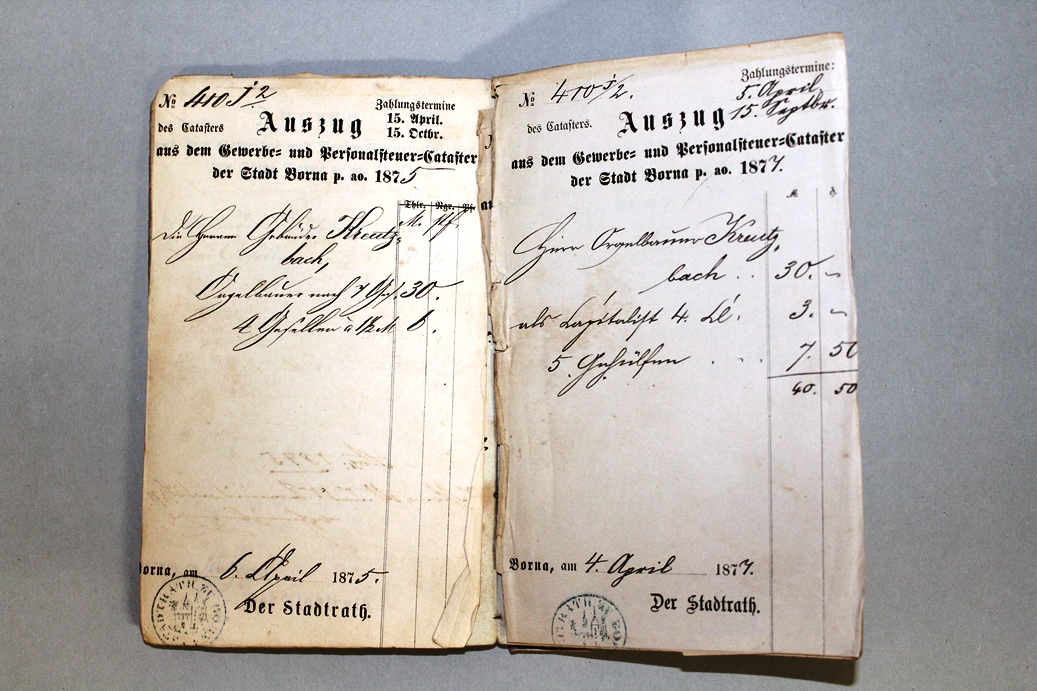 № 410 J 2
des Catasters
Auszug
Zahlungstermine
15. April.
15. Octbr.
aus dem Gewerbe= und Personalsteuer=Cataster
der Stadt Borna p. ao. 1875
Thlr. Ngr. Pf.
M. Pf.
die Herren Gebrüder Kreutz=
bach,
Orgelbauer nach 7 Geh. 30.
4 Gesellen à 1½ M 6.
Borna, am 6. April 1875.
Der Stadtrath.
STADTRATH ZU BORNA
№ 410 J/2.
des Catasters.
Auszug
Zahlungstermine:
5. April,
15. Septbr.
aus dem Gewerbe= und Personalsteuer=Cataster
der Stadt Borna p. ao. 1877.
Herr Orgelbauer Kreutz=
bach . . 30. –
als Capitalist 4. Cl. 3. –
5 Gehülfen . . . 7. 50
40. 50
Borna, am 4. April 1877.
Der Stadtrath.
TRATH ZU BO